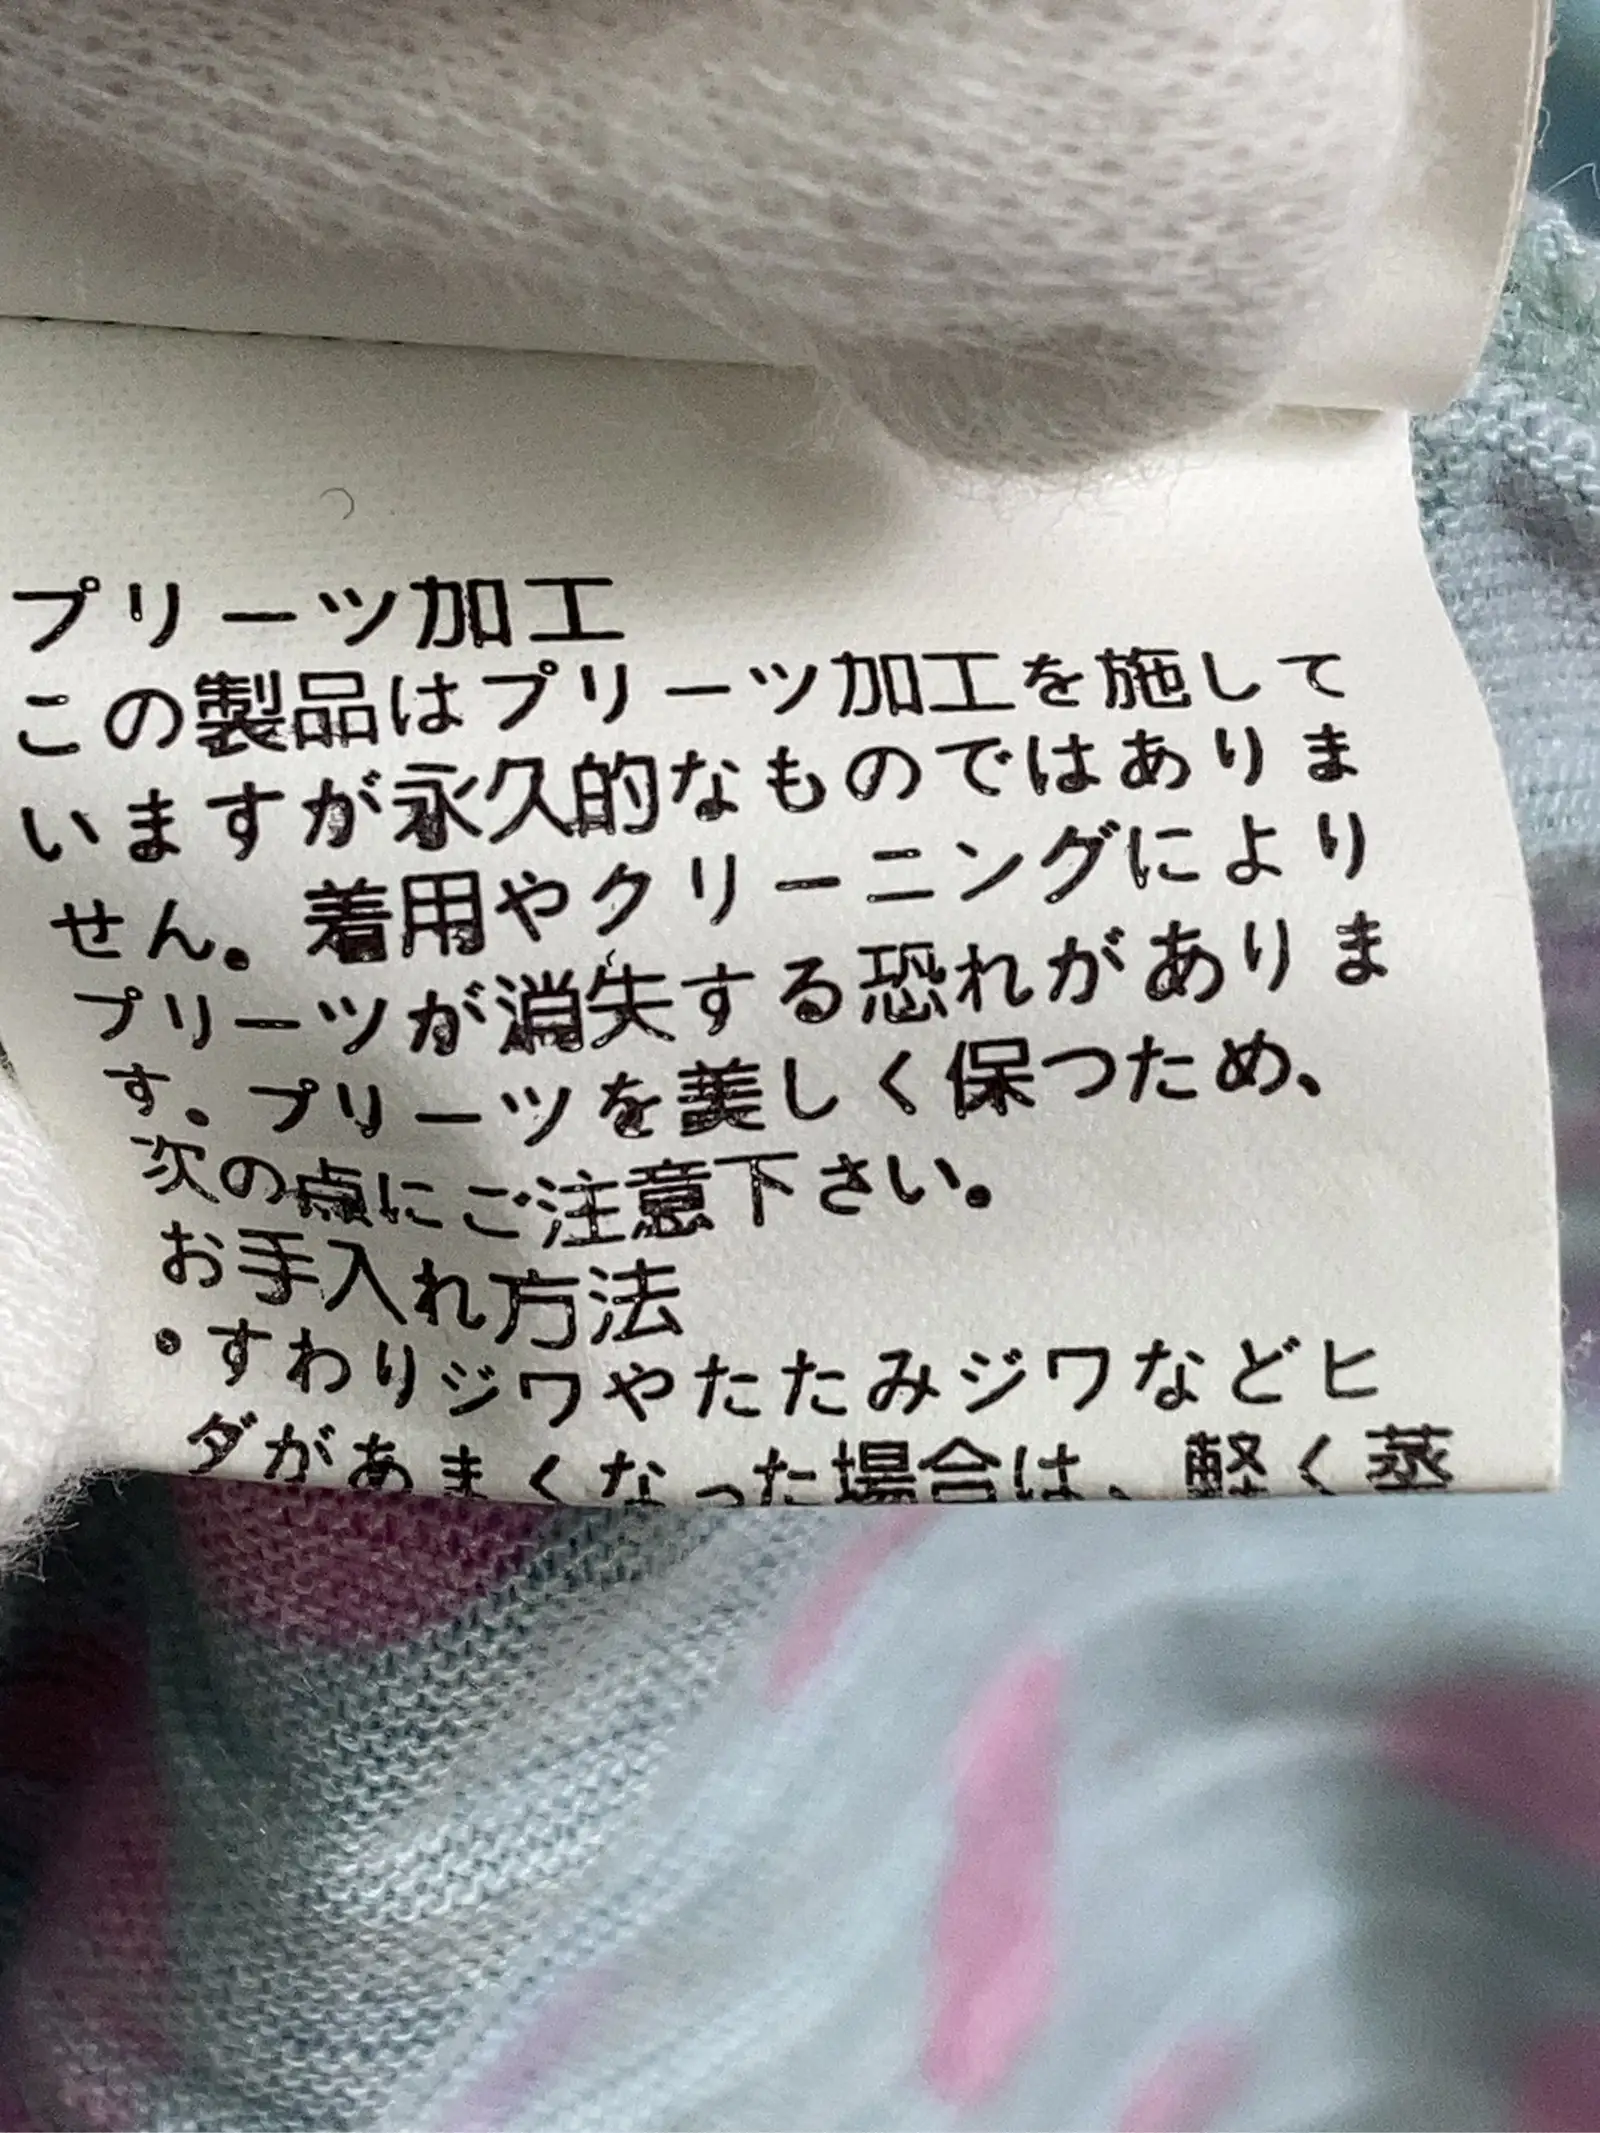 プリーツ加工
この製品はプリーツ加工を施して
いますが永久的なものではありま
せん。着用やクリーニングにより
プリーツが消失する恐れがありま
す。プリーツを美しく保つため、
次の点にご注意下さい。
お手入れ方法
・すわりジワやたたみジワなどヒ
ダがあまくなった場合は、軽く蒸